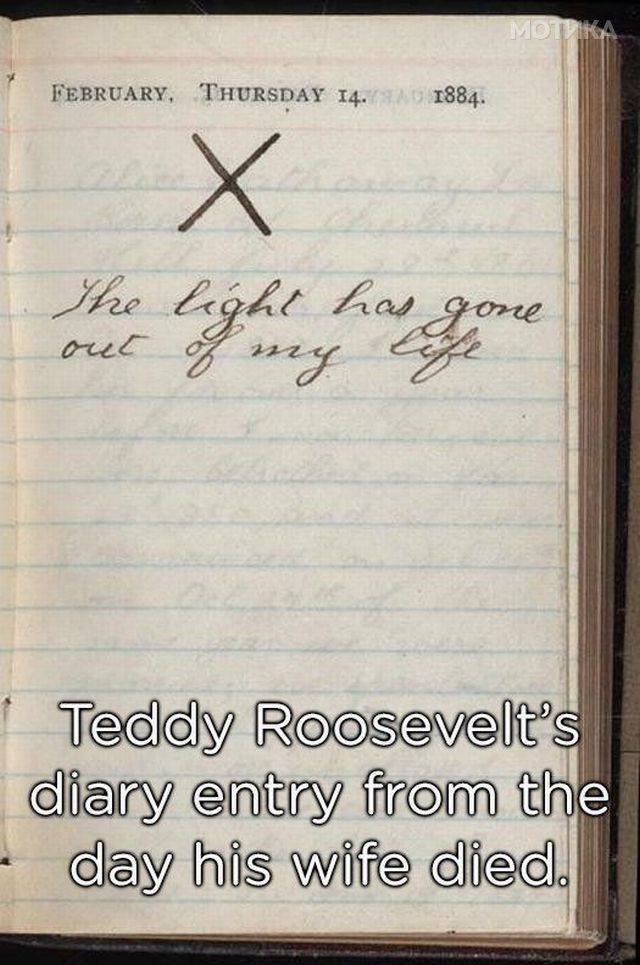 МОТИКА
FEBRUARY, THURSDAY 14. 1884.
X
The light has gone
out of my life
Teddy Roosevelt's
diary entry from the
day his wife died.